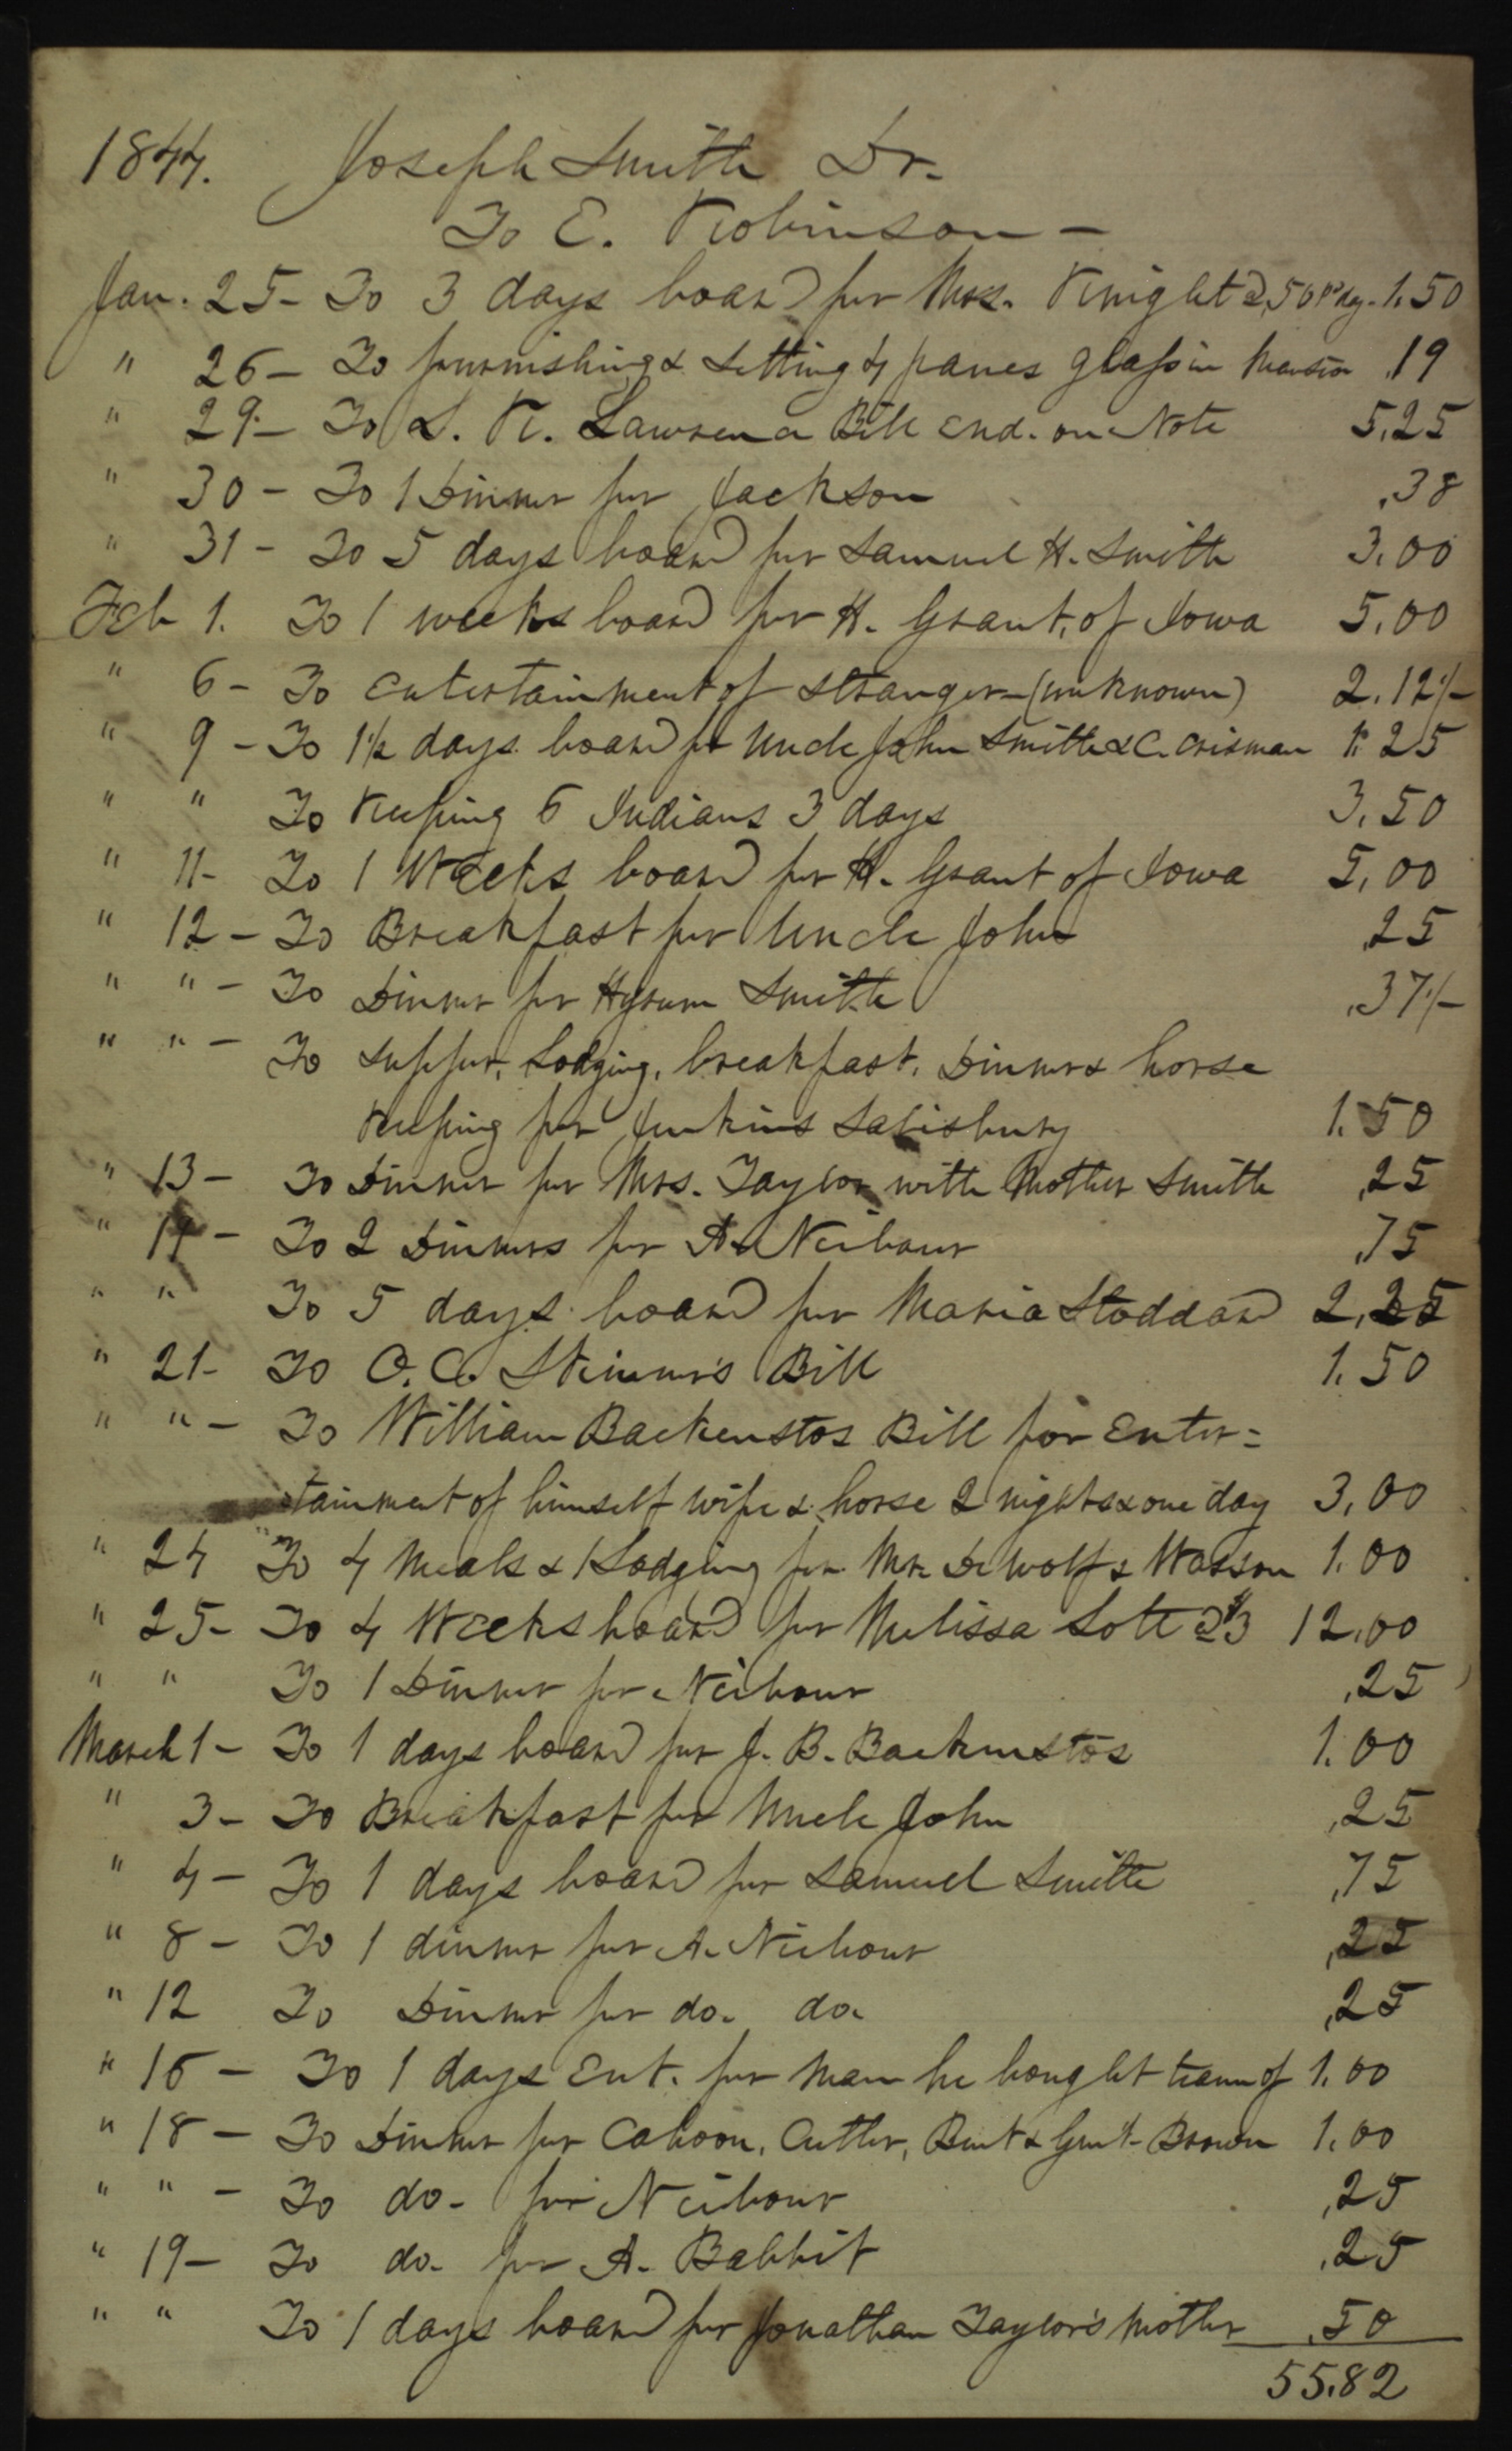 1844. Joseph Smith Dr.
To E. Robinson —
Jan. 25 - To 3 days board for Mrs. Knight @ ,50 pr day - 1.50
" 26 - To furnishing & setting 4 panes glass in Mansion .19
" 29 - To L. R. Bill End. on Note 5,25
" 30 - To 1 Dinner for Jackson .38
" 31 - To 5 days board for Samuel H. Smith 3.00
Feb 1. To 1 weeks board for H. Grant, of Iowa 5.00
" 6 - To entertainment of stranger - (unknown) 2.12½
" 9 - To 1½ days board for Uncle John Smith & C. Crisman 1.25
" " To Keeping 6 Indians 3 days 3,50
" 11 - To 1 Weeks board for H. Grant of Iowa 5,00
" 12 - To Breakfast for Uncle John ,25
" " - To Dinner for Hyrum Smith ,37½
" " - To supper, Lodging, breakfast, Dinner & horse
keeping for Jenkins Salisbury 1.50
" 13 - To Dinner for Mrs. Taylor with Mother Smith ,25
" 14 - To 2 Dinners for A. Neibour ,75
" " To 5 days board for Maria Stoddard 2,25
" 21 - To O. C. Skinner's Bill 1.50
" " - To William Backenstos Bill for Enter=
tainment of himself wife & horse 2 nights & one day 3,00
" 24 To 4 Meals & 1 Lodging for Mr. DeWolf & Wasson 1.00
" 25 - To 4 Weeks board for Melissa Lott @ $3 12.00
" " To 1 Dinner for Neibour ,25
March 1 - To 1 days board for J. B. Backenstos 1.00
" 3 - To Breakfast for Uncle John ,25
" 4 - To 1 days board for Samuel Smith ,75
" 8 - To 1 dinner for A. Neibour ,25
" 12 To Dinner for do. do. ,25
" 16 - To 1 days Ent. for man he bought team of 1.00
" 18 - To Dinner for Cahoon, Cutler, Bent & Brown 1.00
" " - To do - for Neibour ,25
" 19 - To do. for A. Babbit ,25
" " To 1 days board for Jonathan Taylor's Mother ,50
55,82